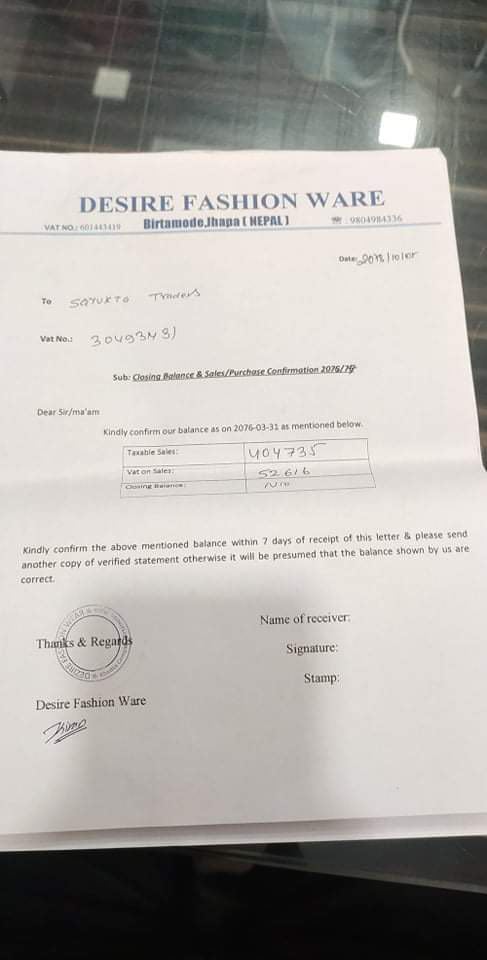 DESIRE FASHION WARE
VAT NO.: 601443419 Birtamode,Jhapa ( NEPAL ) ☎ : 9804984336
Date:
To Traders
Vat No.:
Sub: Closing Balance & Sales/Purchase Confirmation 2076/
Dear Sir/ma'am
Kindly confirm our balance as on 2076-03-31 as mentioned below.
Taxable Sales: 404735
Vat on Sales: 52616
Closing Balance: Nil
Kindly confirm the above mentioned balance within 7 days of receipt of this letter & please send
another copy of verified statement otherwise it will be presumed that the balance shown by us are
correct.
Name of receiver:
Thanks & Regards
Signature:
Stamp:
Desire Fashion Ware